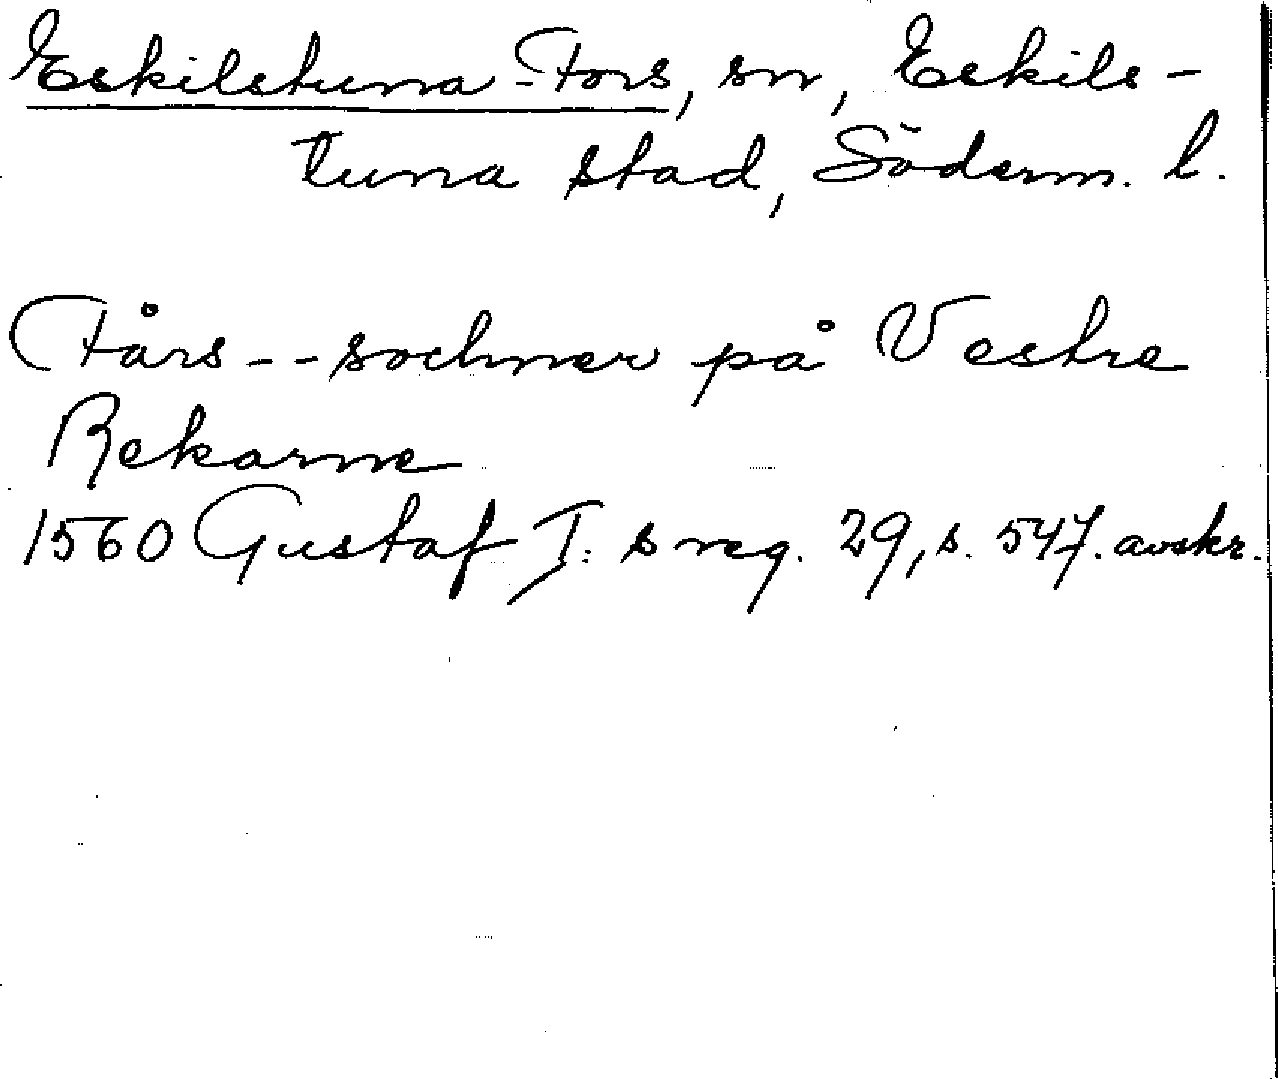 Eskilstuna-Fors, sn, Eskils-
tuna stad, Söderm. l.
Fårs -- sochner på Vestre
Rekarne
1560 Gustaf I:s reg. 29, s. 547. avskr.